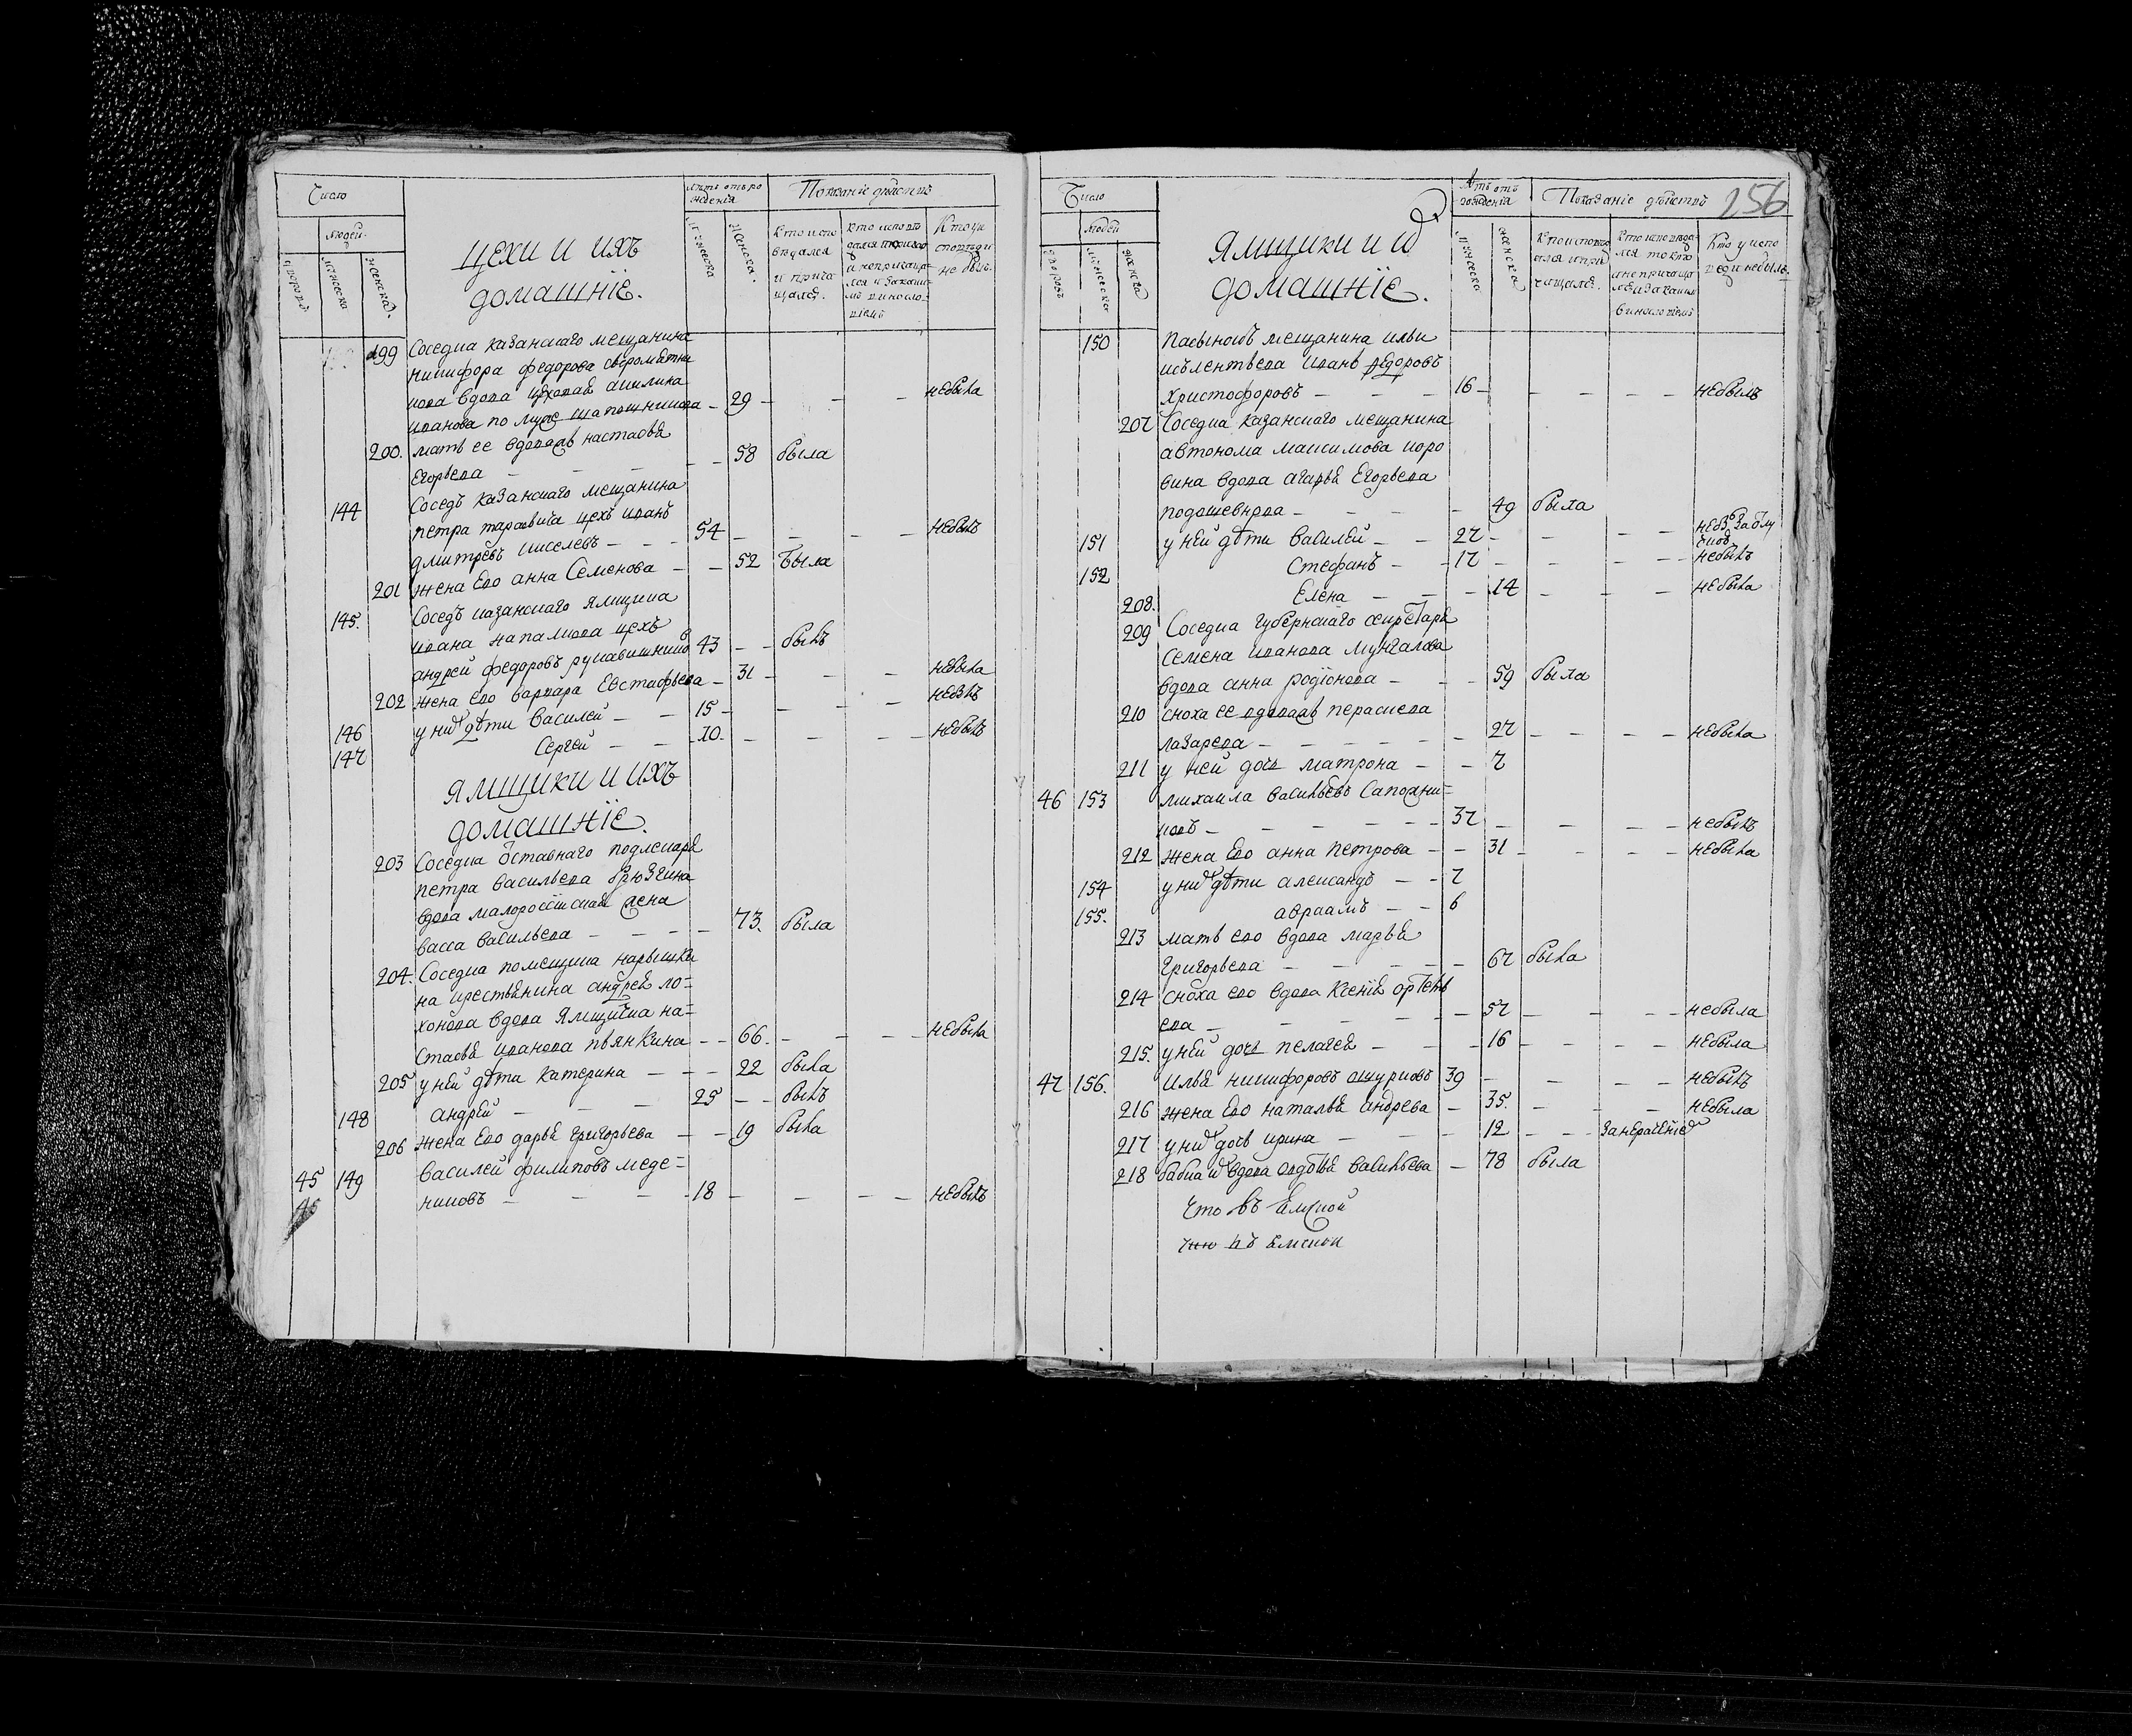 Число
Людей
дворовъ
мужеска
женска
цехи и ихъ
домашнїе.
лѣтъ отъ ро
жденія
мужеска
женска.
Показанїе дѣйствъ
кто испо
вѣдался
и прича
щался.
кто исповѣ
дался токмо
и непричаща
лся и закаки
мъ винасло
віемъ
Кто у и
сповѣди
не былъ.
199 Соседка казанскаго мещанина
никифора федорова
кова вдова цеховая акилина
иванова по муже шапошникова – 29 – – – небыла
200. мать ее вдоваяъ настасья
Егорьева – – – – 58 была
144 Соседъ казанскаго мещанина
петра тарасвича цехъ иванъ
дмитревъ киселевъ – – – 54 – – – – небылъ
201 жена Ево анна Семенова – – 52 Была
145. Соседъ казанскаго ямщика
ивана напалкова цехъ
андрей федоровъ рукавишников 43 – – былъ
202 жена ево варвара Евстафьева – 31 – – – небыла
146 у них дѣти василей – – 15 – – – – небылъ
147 Сергей – – 10. – – – – небылъ
ямщики и ихъ
домашнїе.
203 Соседка отставнаго подлекаря
петра васильева брюзгина
вдова малоросїйская жена
васса васильева – – – – – 73. была
204. Соседка помещика нарышки
на крестьянина андрея ло=
хонова вдова Ямщичка на=
стасья иванова пьянкина – – 66. – – – – небыла
205 у ней дѣти катерина – – – 22 была
148 андрей – – – 25 – – былъ
206 жена Ево дарья григорьева – – 19 была
45 149 василей филиповъ меде=
никовъ – – – – 18 – – – – небылъ
256
Число
людей
дворовъ
мужеска
женска
ямщики и их
домашнїе.
лѣтъ отъ
рожденія
мужеска
женска
Показанїе дѣйствъ
Кто исповѣд
ался и при
чащался.
кто исповѣда
лся токмо
и непричаща
лся и закакимъ
винословіемъ
Кто у испо
веди небылъ.
150 пасынокъ мещанина ильи
иванъ федоровъ
христофоровъ – – – 16 – – – – – небылъ
207 Соседка казанскаго мещанина
автонома максимова коро
вина вдова агафья Егорьева
подошевкова – – – – – 49 была
151 у ней дѣти василей – – 27 – – –
152 Стефанъ – – 17 – – – – – небылъ
208. Елена – – – 14 – – – небыла
209 Соседка губернскаго секретаря
семена иванова мунгалова
вдова анна родїонова – – – 59 была
210 сноха ее вдоваяъ парасковья
лазарева – – – – – – 27 – – – – небыла
211 у ней дочь матрона – – 7
46 153 михаила васильевъ Сапожни=
ковъ – – – – – – 37 – – – – небылъ
212 жена Ево анна петрова – – 31 – – – небыла
154 у них дѣти александръ – – 7
155. авраамъ – – 6
213 мать ево вдова марья
григорьева – – – – – 67 была
214 сноха ево вдова Ксенїя
ева – – – – – 57 – – – небыла
215. у ней дочь пелагея – – – 16 – – – – небыла
47 156. илья никифоровъ ошурковъ 39 – – – – небылъ
216 жена Ево наталья андреева – 35. – – – небыла
217 у них дочь ирина – – – 12 – – –
218 бабка их вдова авдотья васильева – 78 была
Что въ Емской